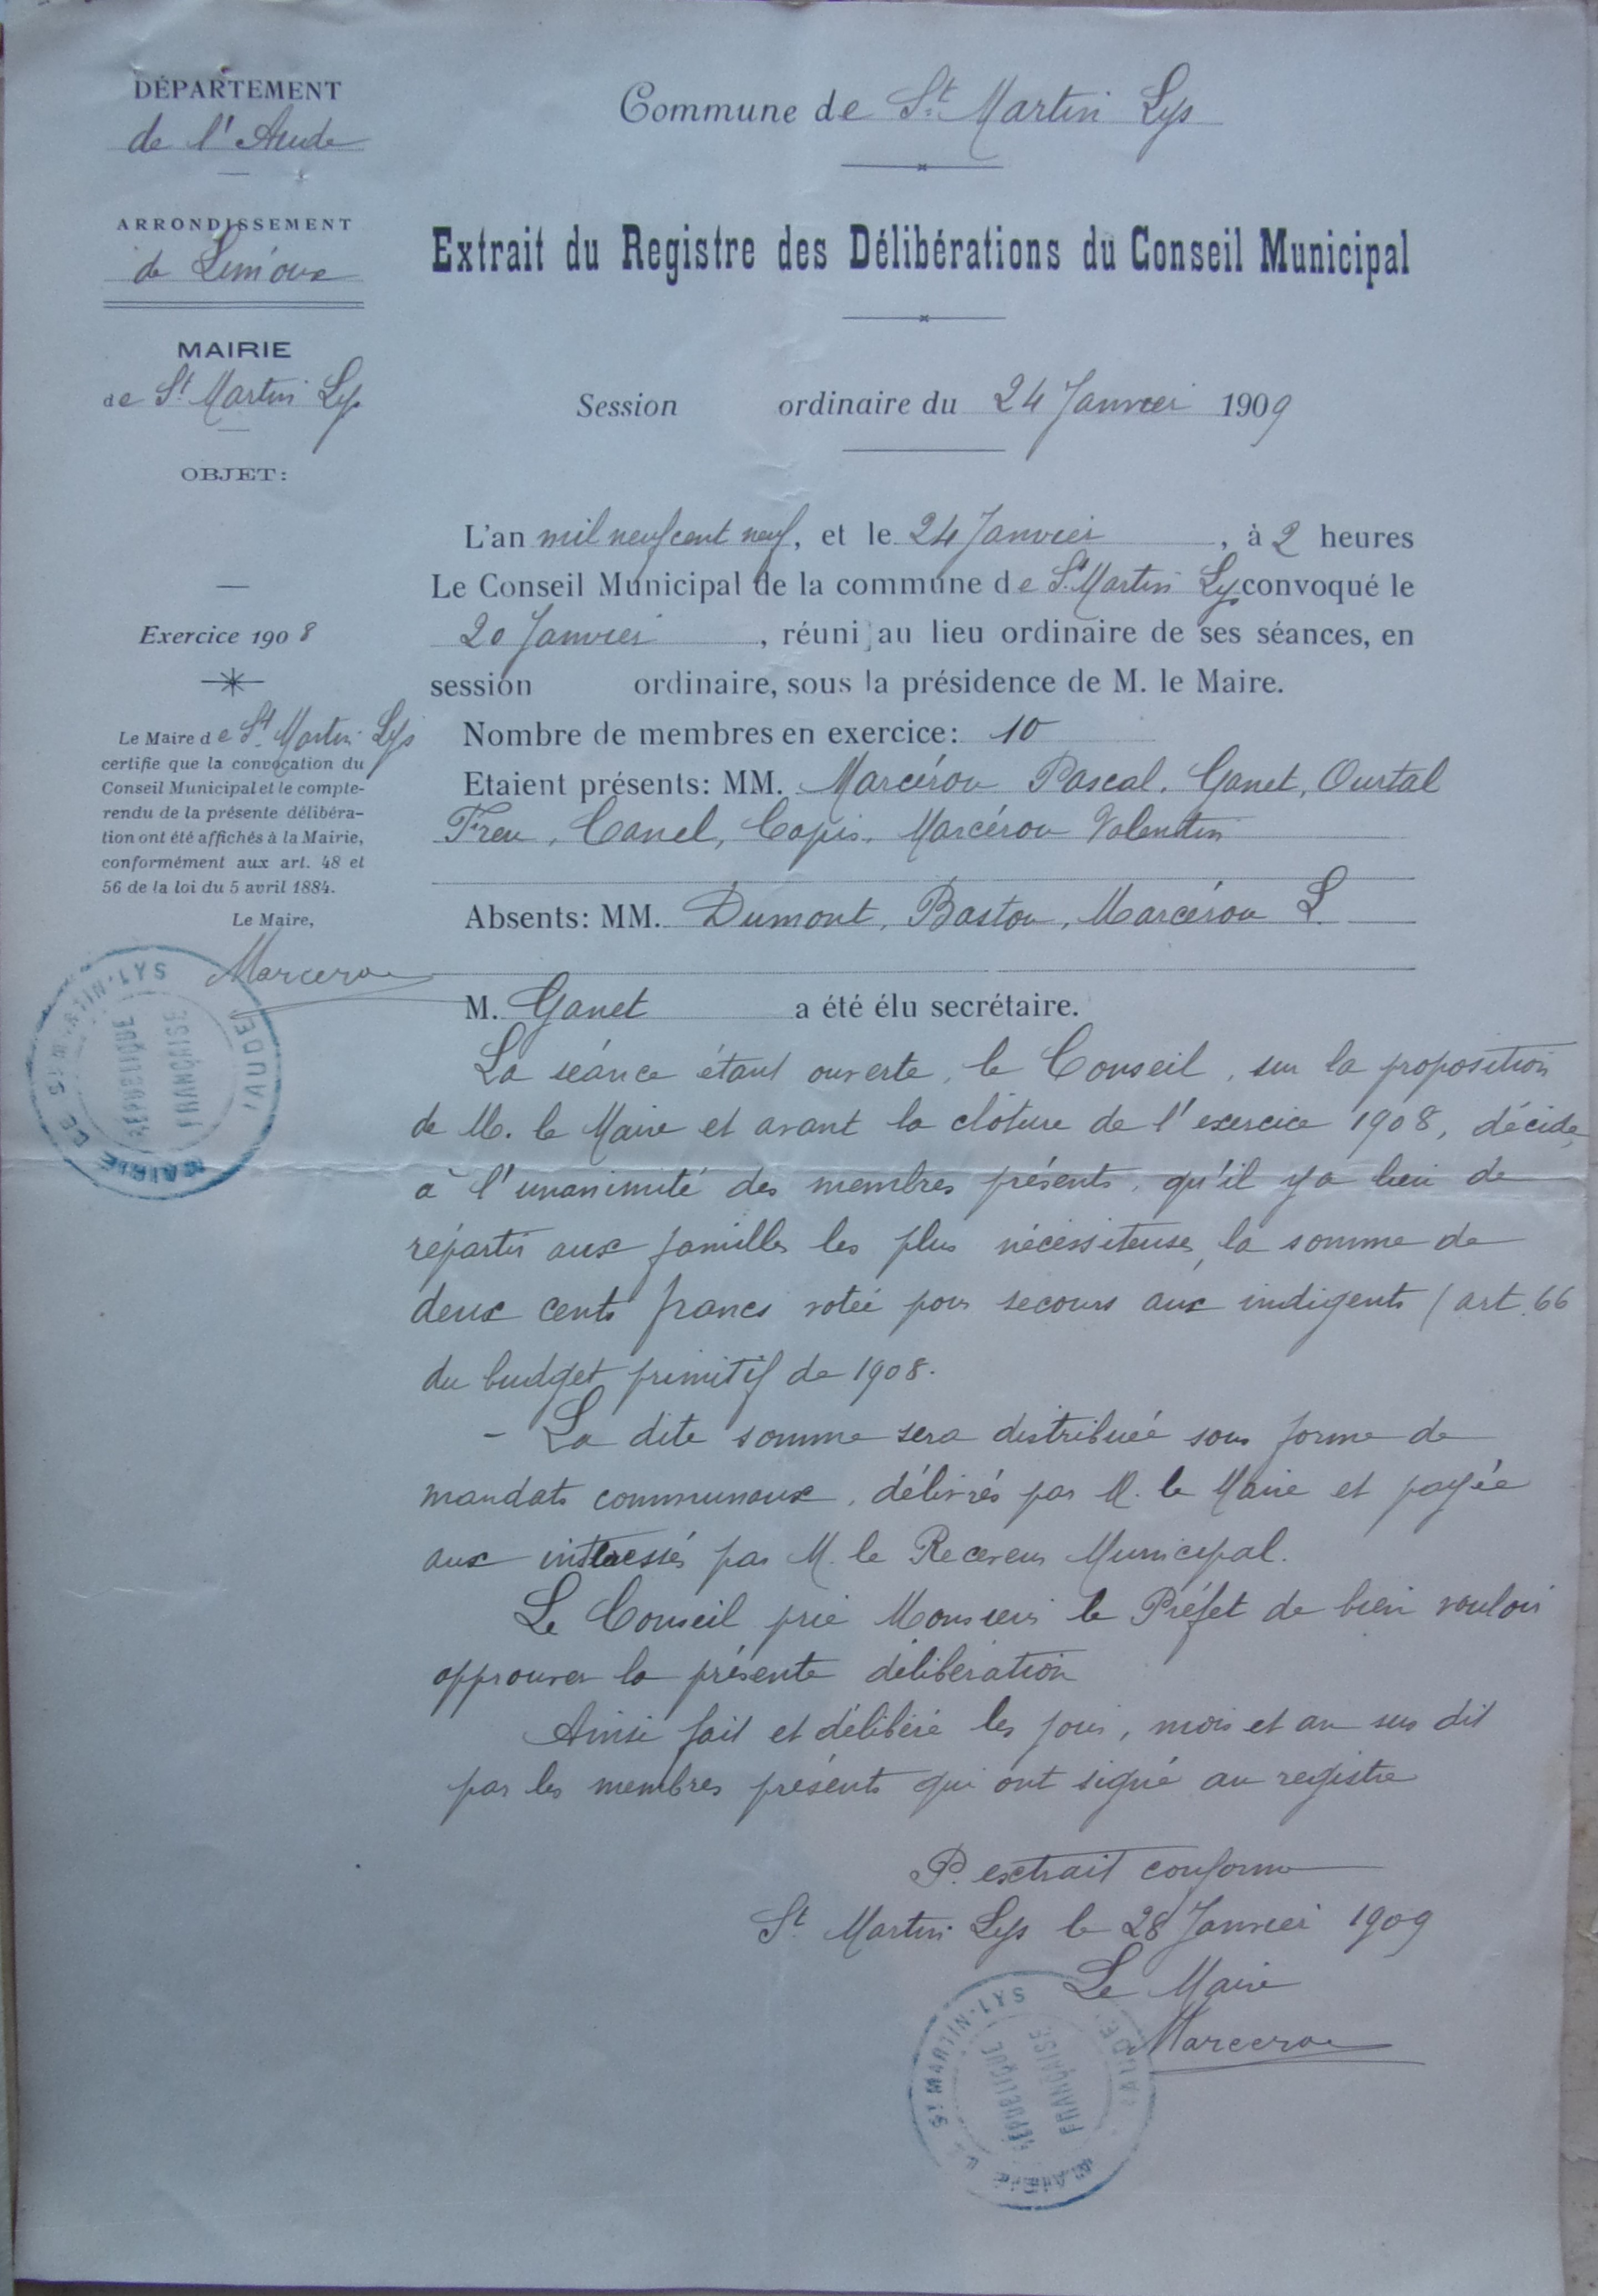 DÉPARTEMENT
de l'Aude
ARRONDISSEMENT
de Limoux
MAIRIE
de St Martin Lys
OBJET:
Exercice 1908
Le Maire de St Martin Lys
certifie que la convocation du
Conseil Municipal et le compte-
rendu de la présente délibéra-
tion ont été affichés à la Mairie,
conformément aux art. 48 et
56 de la loi du 5 avril 1884.
Le Maire,
Marcerou
MAIRIE DE ST MARTIN-LYS (AUDE)
RÉPUBLIQUE
FRANÇAISE
Commune de St Martin Lys
Extrait du Registre des Délibérations du Conseil Municipal
Session ordinaire du 24 Janvier 1909
L'an mil neuf cent neuf, et le 24 Janvier, à 2 heures
Le Conseil Municipal de la commune de St Martin Lys convoqué le
20 Janvier, réuni au lieu ordinaire de ses séances, en
session ordinaire, sous la présidence de M. le Maire.
Nombre de membres en exercice: 10
Etaient présents: MM. Marcérou Pascal, Ganet, Ourtal
Freu, Canel, Capis, Marcérou Valentin
Absents: MM. Dumont, Bastou, Marcérou L.
M. Ganet a été élu secrétaire.
La séance étant ouverte, le Conseil, sur la proposition
de M. le Maire et avant la clôture de l'exercice 1908, décide,
à l'unanimité des membres présents, qu'il y a lieu de
répartir aux familles les plus nécessiteuses, la somme de
deux cents francs votée pour secours aux indigents (art. 66
du budget primitif de 1908.
- La dite somme sera distribuée sous forme de
mandats communaux, délivrés par M. le Maire et payée
aux intéressés par M. le Receveur Municipal.
Le Conseil prie Monsieur le Préfet de bien vouloir
approuver la présente délibération
Ainsi fait et délibéré les jour, mois et an sus dit
par les membres présents qui ont signé au registre
P. extrait conforme
St Martin Lys le 28 Janvier 1909
Le Maire
Marcerou
MAIRIE DE ST MARTIN-LYS (AUDE)
RÉPUBLIQUE
FRANÇAISE